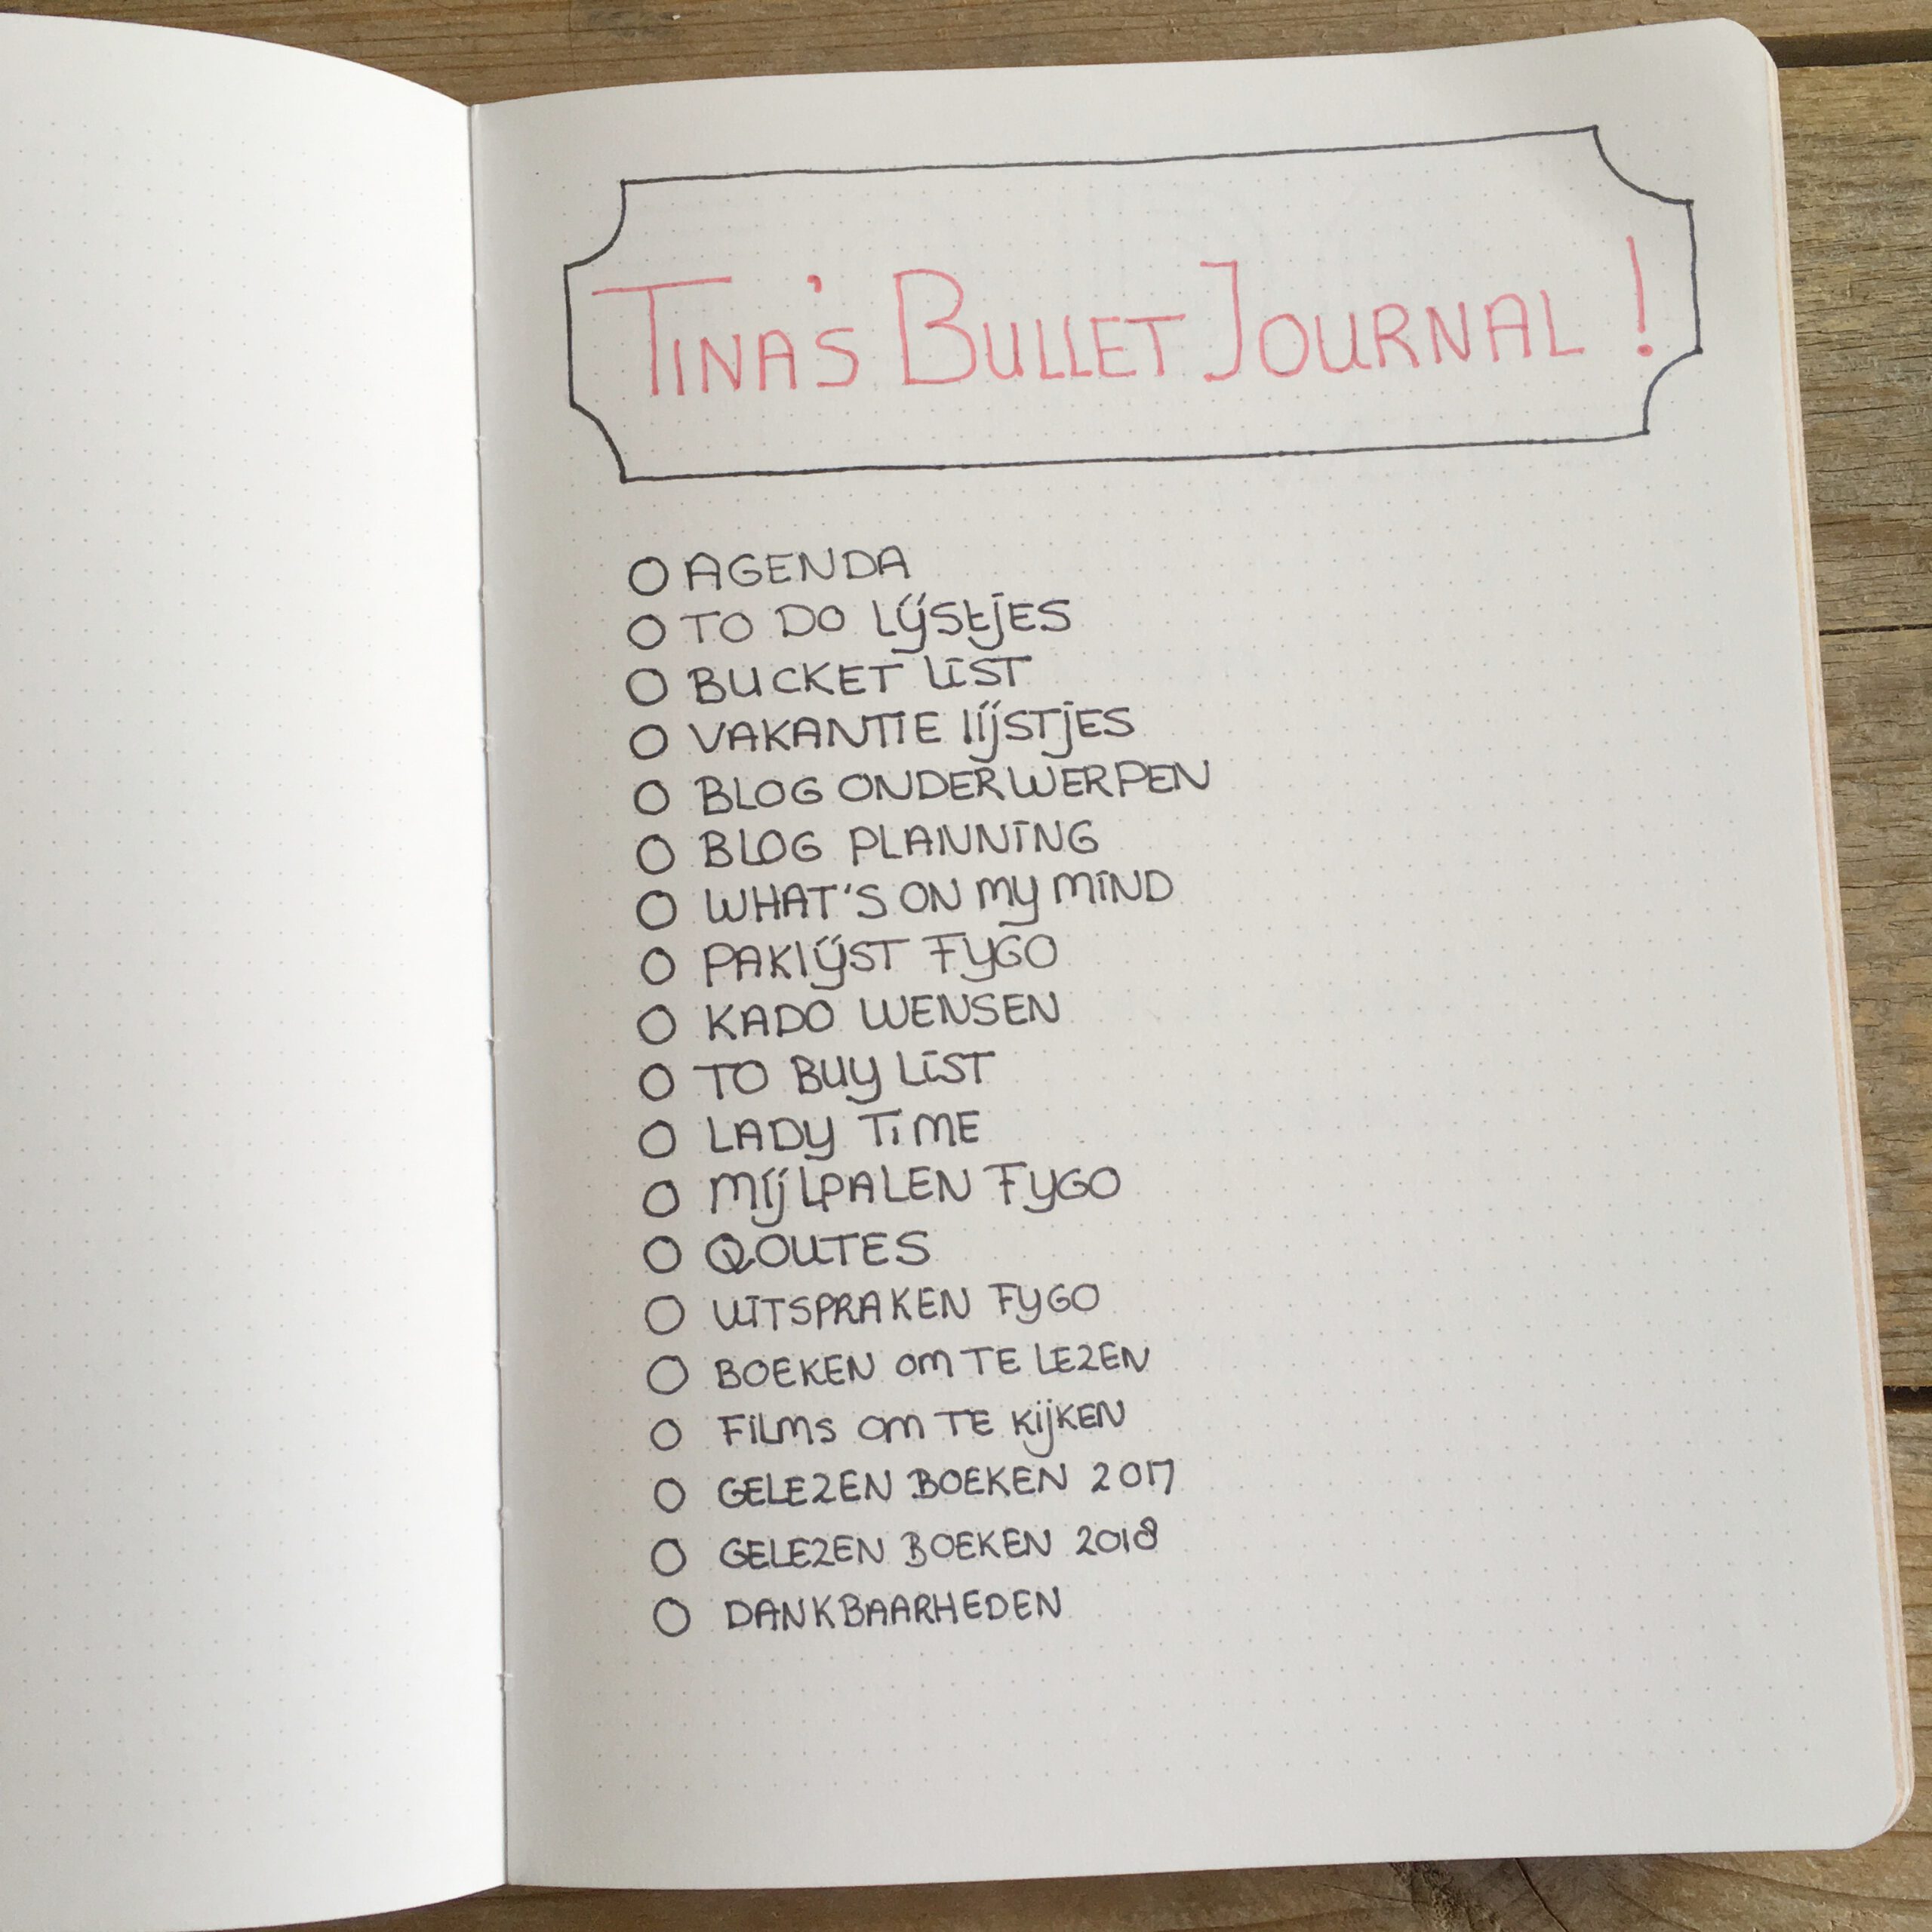 TINA'S BULLET JOURNAL !
O AGENDA
O TO DO LIJSTJES
O BUCKET LIST
O VAKANTIE LIJSTJES
O BLOG ONDERWERPEN
O BLOG PLANNING
O WHAT'S ON MY MIND
O PAKLIJST FYGO
O KADO WENSEN
O TO BUY LIST
O LADY TIME
O MIJLPALEN FYGO
O QOUTES
O UITSPRAKEN FYGO
O BOEKEN OM TE LEZEN
O FILMS OM TE KIJKEN
O GELEZEN BOEKEN 2017
O GELEZEN BOEKEN 2018
O DANKBAARHEDEN